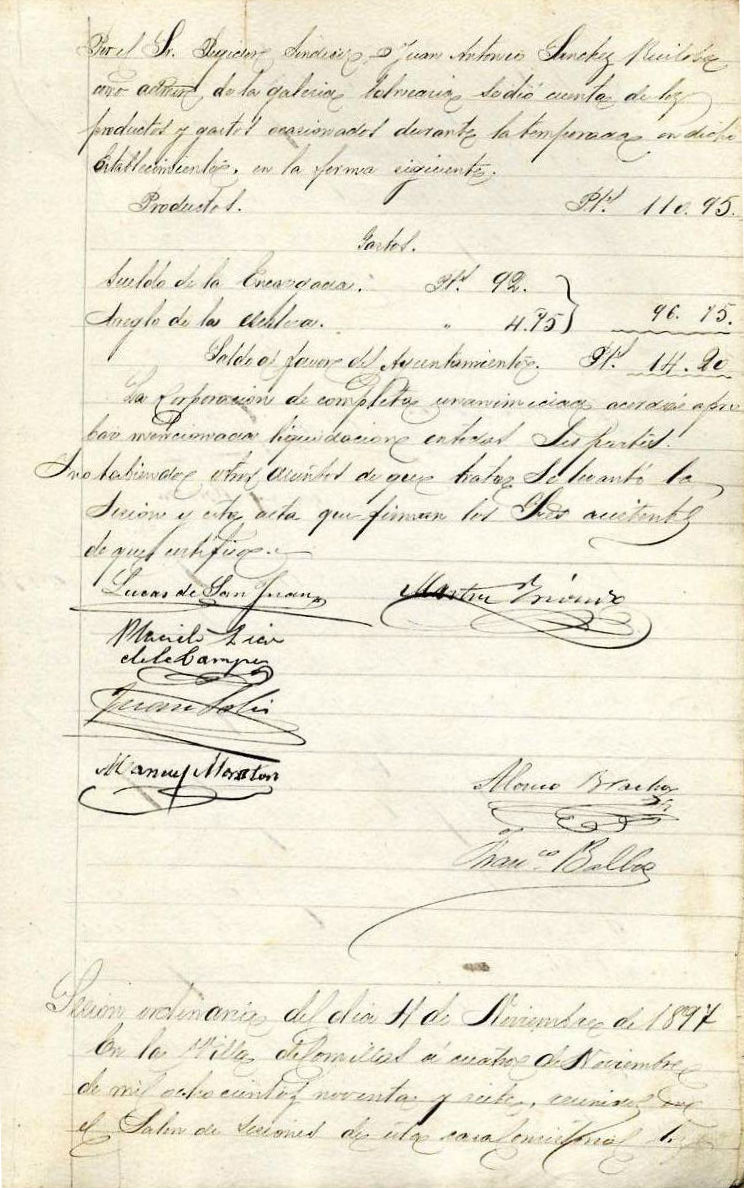 Por el Sr. Regidor Síndico D. Juan Antonio Sanchez
como admor. de la galeria balnearia se dió cuenta de los
productos y gastos ocasionados durante la temporada en dicho
Establecimiento, en la forma siguiente.
Productos. Pts. 110.95.
Gastos.
Sueldo de la Encargada. Pts. 92.
Arreglo de la escalera. " 4.75 96.75.
Saldo á favor del Ayuntamiento. Pts. 14.20
La Corporacion de completa unanimidad acordó apro
bar mencionada liquidacion en todas sus partes.
Y no habiendo otros asuntos de que tratar se levantó la
Sesion y esta acta que firman los Sres asistentes
de que certifico.
Lucas de San Juan
Placido
de la Campa
Juan Solis
Manuel Moraton
Alonso
Franco. Balbo
Sesion ordinaria del dia 4 de Noviembre de 1897
En la Villa de Comillas á cuatro de Noviembre
de mil ochocientos noventa y siete, reunidos en
el Salon de sesiones de esta casa Consistorial